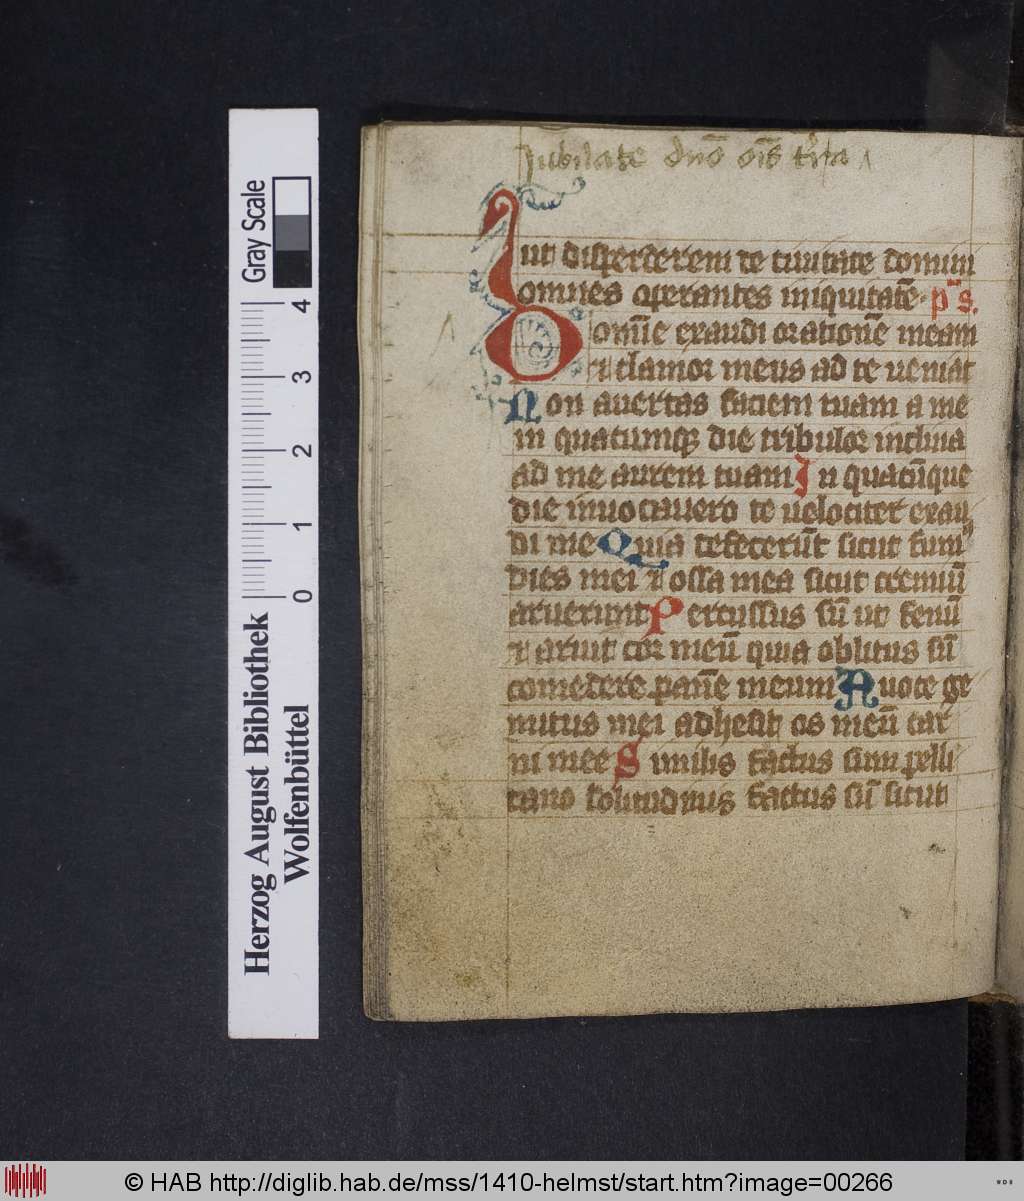 Jubilate dn̄o oīs t'ra
ut disperderem de ciuitate domini
omnes operantes iniquitatē p̄s.
Domīe exaudi orationē meam
et clamor meus ad te ueniat
Non auertas faciem tuam a me
in quacumqꝫ die tribulor inclina
ad me aurem tuam In quacūque
die inuocauero te uelociter exau
di me Quia defecerūt sicut fumꝰ
dies mei ⁊ ossa mea sicut cremiū
aruerunt Percussus sū ut fenū
⁊ aruit cor meū quia oblitus sū
comedere panē meum A uoce ge
mitus mei adhesit os meū car
ni mee Similis factus sum pelli
cano solitudinis factus sū sicut
Herzog August Bibliothek
Wolfenbüttel
0 1 2 3 4
Gray Scale
© HAB http://diglib.hab.de/mss/1410-helmst/start.htm?image=00266